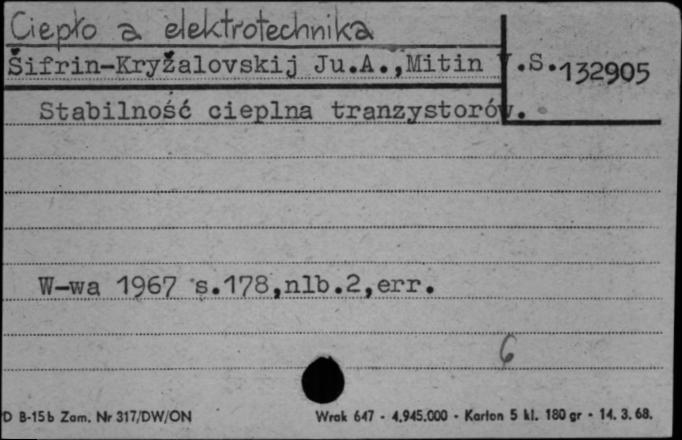 Ciepło a elektrotechnika
Šifrin-Kryžalovskij Ju.A.,Mitin V.S.
132905
Stabilność cieplna tranzystorów.
W-wa 1967 s.178,nlb.2,err.
6
D B-15b Zam. Nr 317/DW/ON Wrak 647 - 4.945.000 - Karton 5 kl. 180 gr - 14. 3. 68.